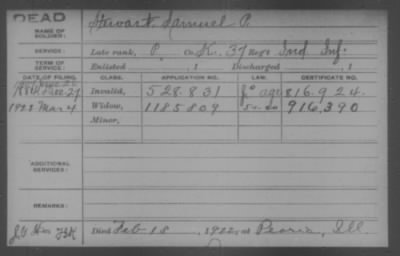 DEAD
NAME OF SOLDIER: Stewart Samuel P.
SERVICE: Late rank, P Co. K. 37 Reg't Ind Inf.
TERM OF SERVICE: Enlisted , 1 Discharged , 1
DATE OF FILING. CLASS. APPLICATION NO. LAW. CERTIFICATE NO.
27 Invalid, 528.831 age 816.924.
Mar 4 Widow, 1185809 916,390
Minor,
ADDITIONAL SERVICES:
REMARKS:
Died Feb 18, 1922, at Peoria, Ill.